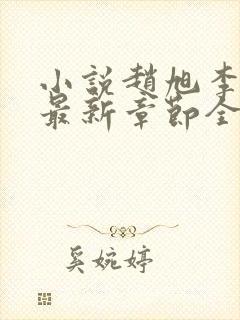 小說趙旭李
最新章節全
奚婉婷